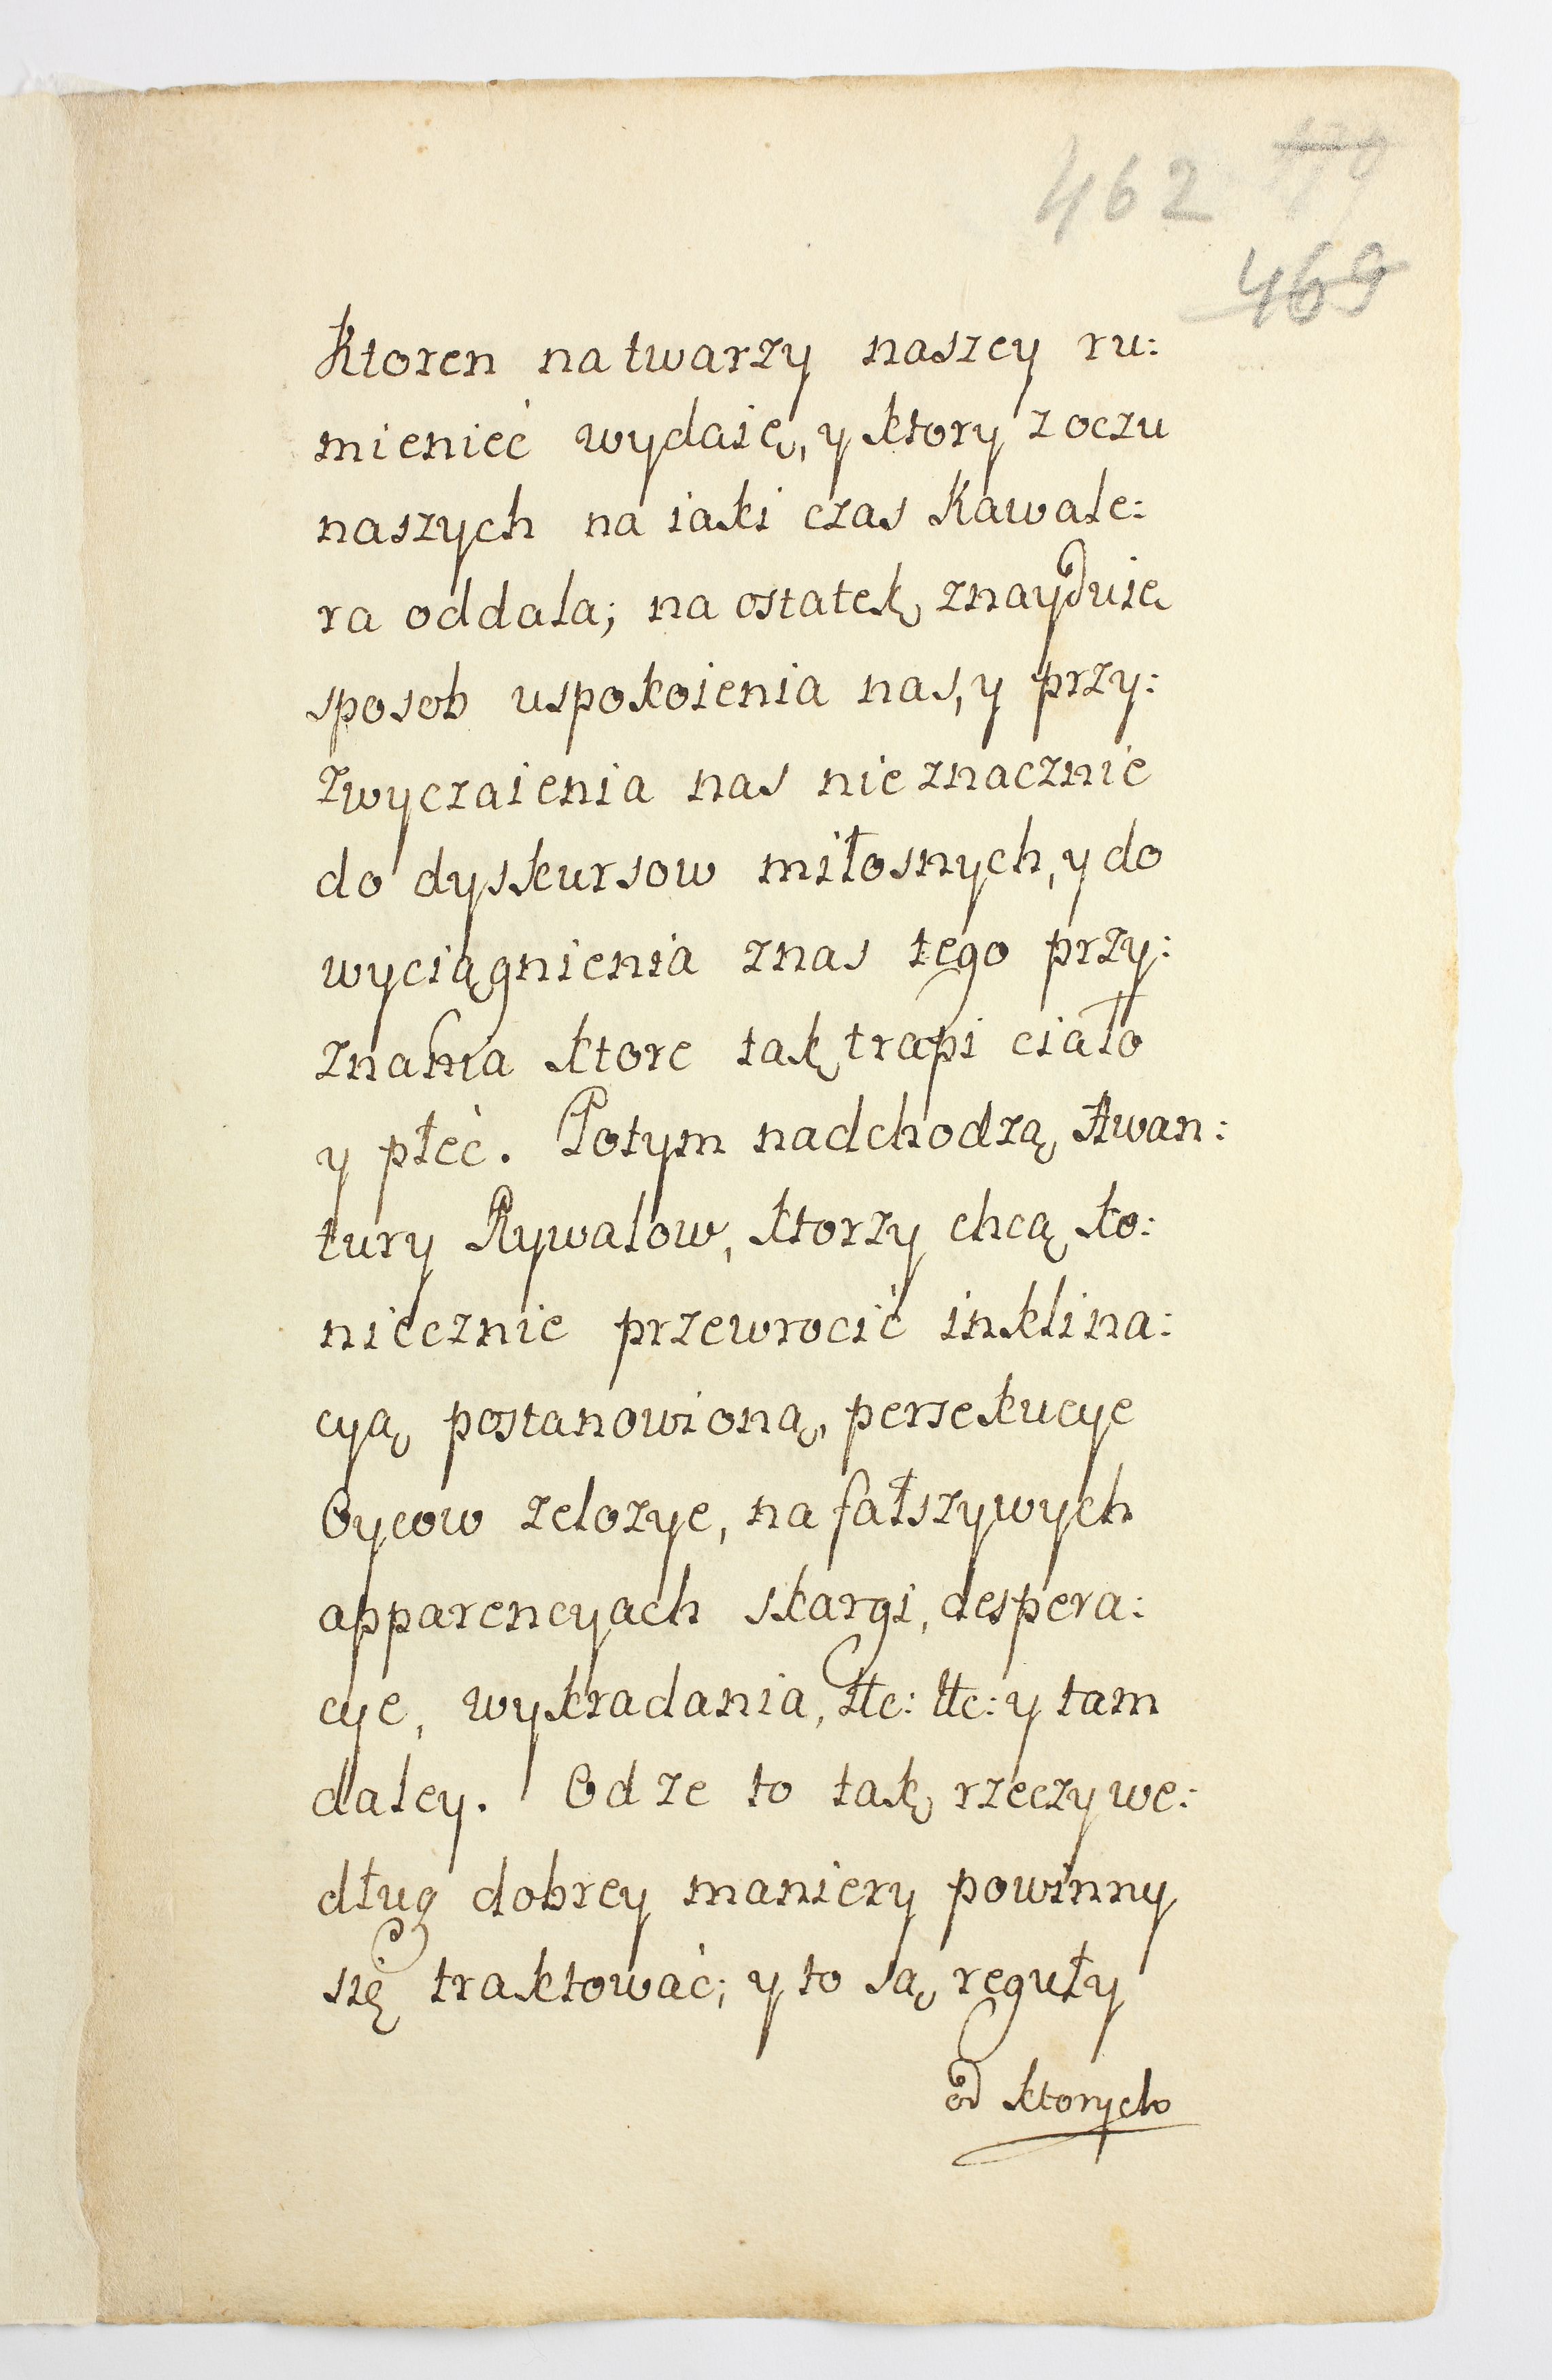 462
469
Ktoren na twarzy naszey ru:
mienieć wydaię, y ktory z oczu
naszych na iaki czas Kawale:
ra oddala; na ostatek znayduie
sposob uspokoienia nas, y przy:
zwyczaienia nas nieznacznie
do dyskursow miłosnych, y do
wyciągnienia znas tego przy:
znania ktore tak trapi ciało
y płeć. Potym nadchodzą Awan:
tury Rywalow, ktorzy chcą ko:
niecznie przewrocić inklina:
cyą postanowioną, persekucye
Oycow zelozye, na fałszywych
apparencyach skargi, despera:
cye, wykradania, etc: etc: y tam
daley. Od ze to tak rzeczy we:
dług dobrey maniery powinny
się traktować; y to są reguły
od ktorych